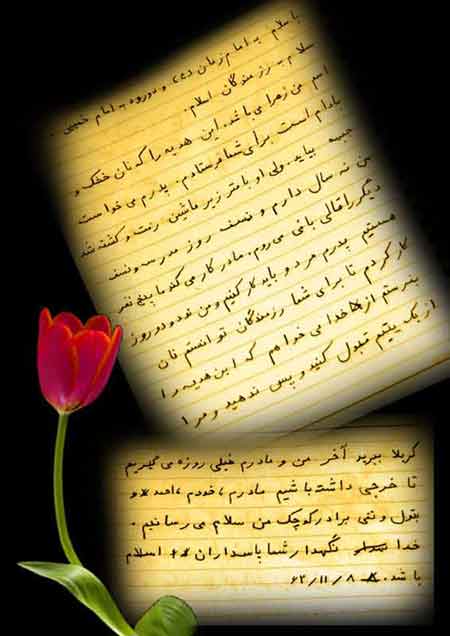 با سلام به امام زمان (عج) و درود به امام خمینی .
سلام به رزمندگان اسلام.
اسم من زهرا می باشد. این هدیه را که نان خشک و
بادام است برای شما فرستادم. پدرم می خواست
جبهه بیاید. ولی او با موتر زیر ماشن رفت و کشته شد
من نه سال دارم و نصف روز مدرسه و نصف
دیگر را قالی بافی می روم. مادر کار می کند ما پنج نفر
هستیم پدرم مرد و باید کار کنیم و من نود و دو روز
کار کردم تا برای شما رزمندگان توانستم نان
بفرستم از خدا می خواهم که این هدیه را
از یک یتیم قبول کنید و پس ندهید و مرا
کربلا ببرید آخر من و مادرم خیلی روزه می گیریم
تا خرجی داشته باشیم مادرم ، خودم ، احمد و
بتول و ننی برادر کوچک من سلام می رسانیم .
خدا نگهدار شما پاسداران اسلام
باشد. ۶۲/۱۱/۸